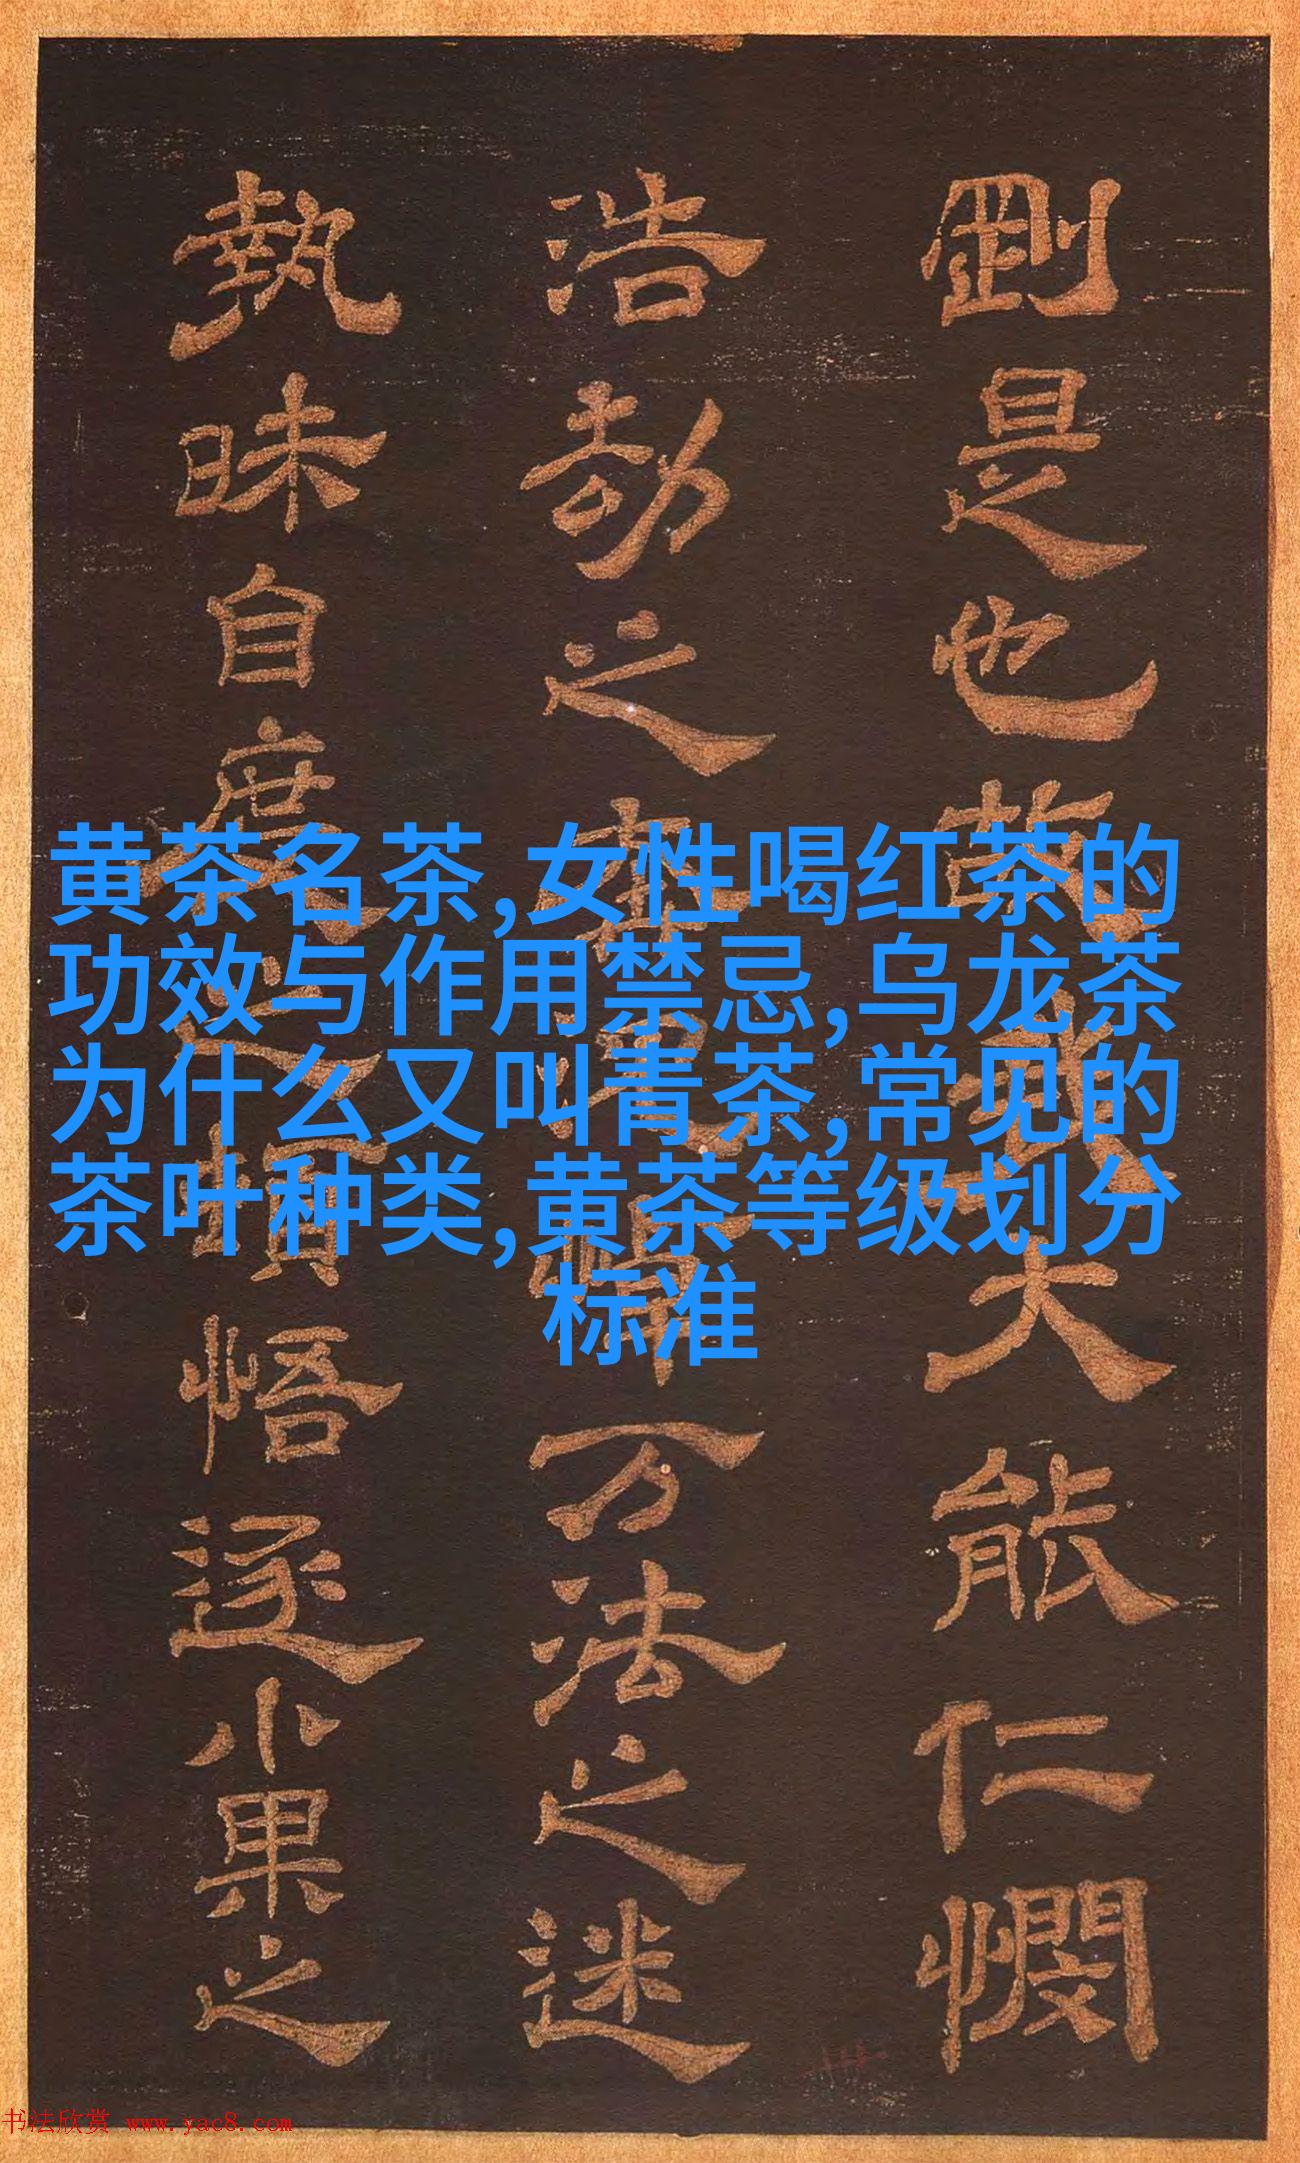 剛是也故大能仁憫
浩劫之万法之迷
執昧自度之悟逐小果之
黄茶名茶,女性喝红茶的
功效与作用禁忌,乌龙茶
为什么又叫青茶,常见的
茶叶种类,黄茶等级划分
标准
书法欣赏 www.yac8.com